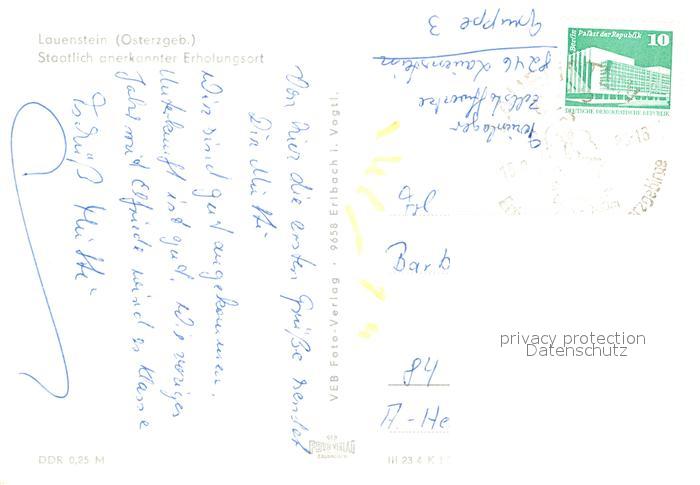 Lauenstein (Osterzgeb.)
Staatlich anerkannter Erholungsort
Von hier die ersten Grüße sendet
Dir Mutti.
Wir sind gut angekommen.
Unterkunft ist gut. Wie voriges
Jahr mit Elfriede wird es klasse
Tschüß Mutti
VEB Foto-Verlag · 9658 Erlbach i. Vogtl.
Ferienlager
Zellstoffwerke
8246 Lauenstein
Gruppe 3
Berlin Palast der Republik 10
DEUTSCHE DEMOKRATISCHE REPUBLIK
Frl
Barb
84
A.-He
privacy protection
Datenschutz
DDR 0,25 M
III 23 4 K